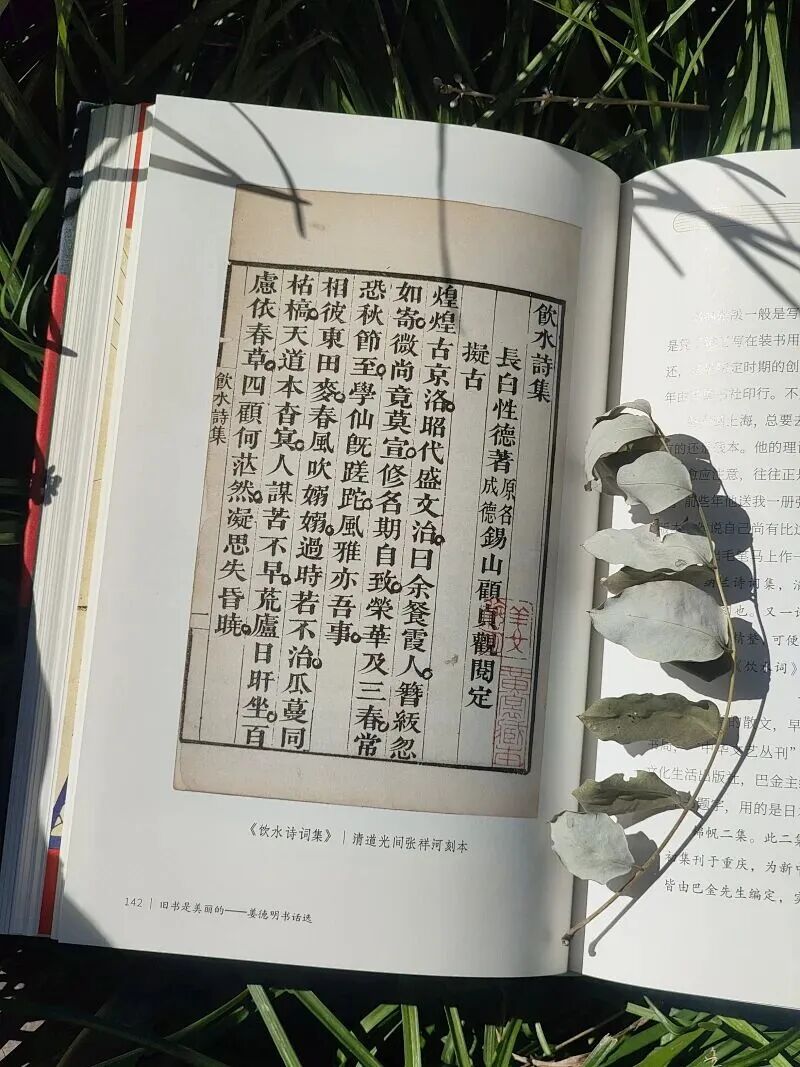 飲水詩集
長白性德著 原名成德 錫山顧貞觀閱定
擬古
煌煌古京洛。昭代盛文治。曰余餐霞人。簪紱忽
如寄。微尚竟莫宣。修名期自致。榮華及三春。常
恐秋節至。學仙旣蹉跎。風雅亦吾事。
相彼東田麥。春風吹嫋嫋。過時若不治。瓜蔓同
枯槁。天道本杳冥。人謀苦不早。荒廬日旰坐。百
慮依春草。四顧何茫然。凝思失昏曉。
飲水詩集
《饮水诗词集》｜清道光间张祥河刻本
142｜旧书是美丽的——姜德明书话选
段一般是写
是 写在装书用
还， 定时期的创
年由 书社印行。不
上海，总要去
的还 本。他的理
应注意，往往正是
前些年他送我一册张
说自己尚有比这
出毛笔马上作一
纳兰诗词集，清
也。又一
精整，可便
《饮水词》
的散文，早
书局，“中华文艺丛刊”
文化生活出版社，巴金主
题字，用的是日
锦帆二集。此二集
初集刊于重庆，为新中
皆由巴金先生编定，实